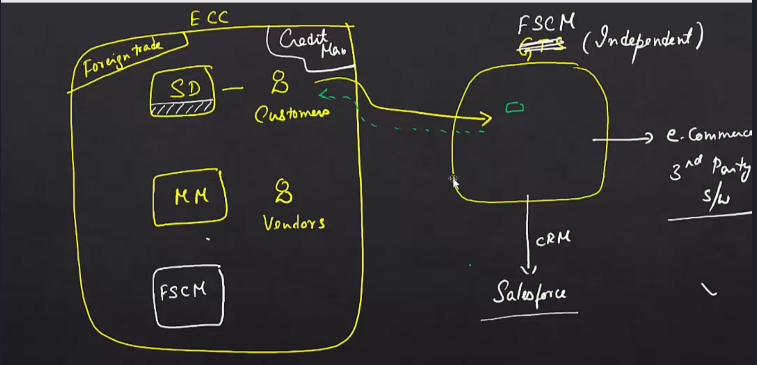 ECC
Foreign trade
Credit
Man
SD
Customers
MM
Vendors
FSCM
FSCM
GTS (Independent)
e-Commerce
3rd Party
S/W
CRM
Salesforce